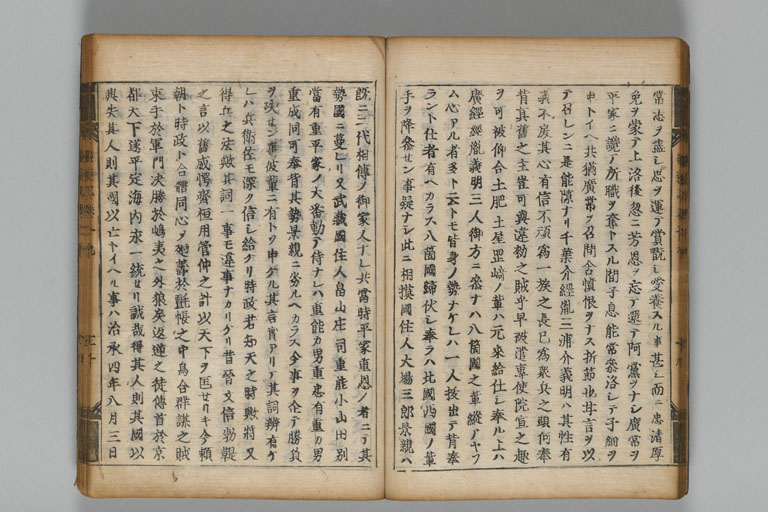 常志ヲ盡シ思ヲ運テ賞翫シ愛養スル事甚シ而ニ忠清厚
免ヲ蒙テ上洛後忽ニ芳恩ヲ忘テ還テ阿黨ヲナシ廣常ヲ
平家ニ讒テ所職ヲ奪トスル間子息能常參洛シテ子細ヲ
申トイヘ共猶廣常ヲ召問含憤恨ヲナス折節也荓言ヲ以
テ召シニ是能隙ナリ千葉介經胤三浦介義明ハ其性有
義不屓其心有信不頑爲一族之長已爲衆兵之頭何奉
背眞舊之主豈可與違勅之賊乎早被遣專使院宣之趣
ヲ可被仰合土肥土屋罡崎ノ輩ハ元來給仕シ奉ル上ハ
廣經經胤義明三人御方ニ參ナハ八箇國之輩縱アヤフ
ム心アル者多ト云トモ皆身ノ勢ナケレハ一人拔出テ背奉
ラント仕者有ヘカラス八箇國歸伏シ奉ラハ北國西國ノ輩
手ヲ降參セン事疑ナシ此ニ相摸國住人大塲三郎景親ハ
既ニ三代相傳ノ御家人ナレ共當時平家重恩ノ者ニテ其
勢國ニ蔓レリ又武藏國住人畠山庄司重能小山田別
當有重平家ノ大番勤テ侍ナレハ重能カ男重忠有重カ男
重成同可奉背其勢景親ニ劣ルヘカラス全事ヲ企テ勝負
ヲ决セン事彼輩ニ有トソ申ケル其言實アリテ其詞辨有ケ
レハ兵衛佐モ深ク信シ給ケリ時政若知天之時歟將又
得兵之法歟其詞一事モ違事ナカリケリ昔晉文信勃鞮
之言以舊威愕齊桓用管仲之計以天下ヲ匡セリキ今頼
朝ト時政ト合體同心ヲ廻籌於䩞帳之中烏合群謀之賊
束手於軍門决勝於嶋夷之外狼戾返逆之徒傳首於京
都天下遂平定海内永一統セリ誠哉得其人則其國以
興失其人則其國以亡トイヘル事ハ治承四年八月三日